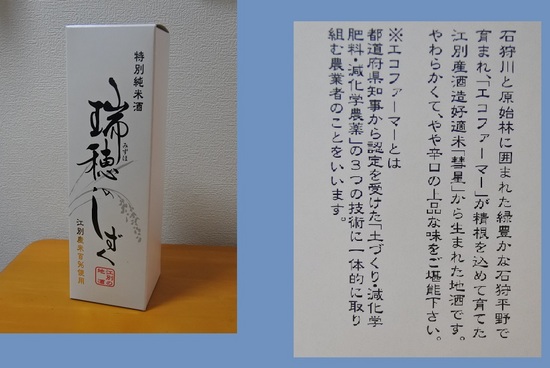 特別純米酒
瑞穂のしずく
みずほ
江別産米百%使用
江別の
地酒
石狩川と原始林に囲まれた緑豊かな石狩平野で
育まれ、「エコファーマー」が精根を込めて育てた
江別産酒造好適米「彗星」から生まれた地酒です。
やわらかくて、やや辛口の上品な味をご堪能下さい。
※エコファーマーとは
都道府県知事から認定を受けた「土づくり・減化学
肥料・減化学農薬」の3つの技術に一体的に取り
組む農業者のことをいいます。